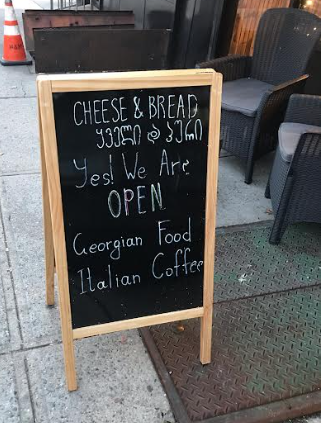 CHEESE & BREAD
ყველი & პური
Yes! We Are
OPEN.
Georgian Food
Italian Coffee